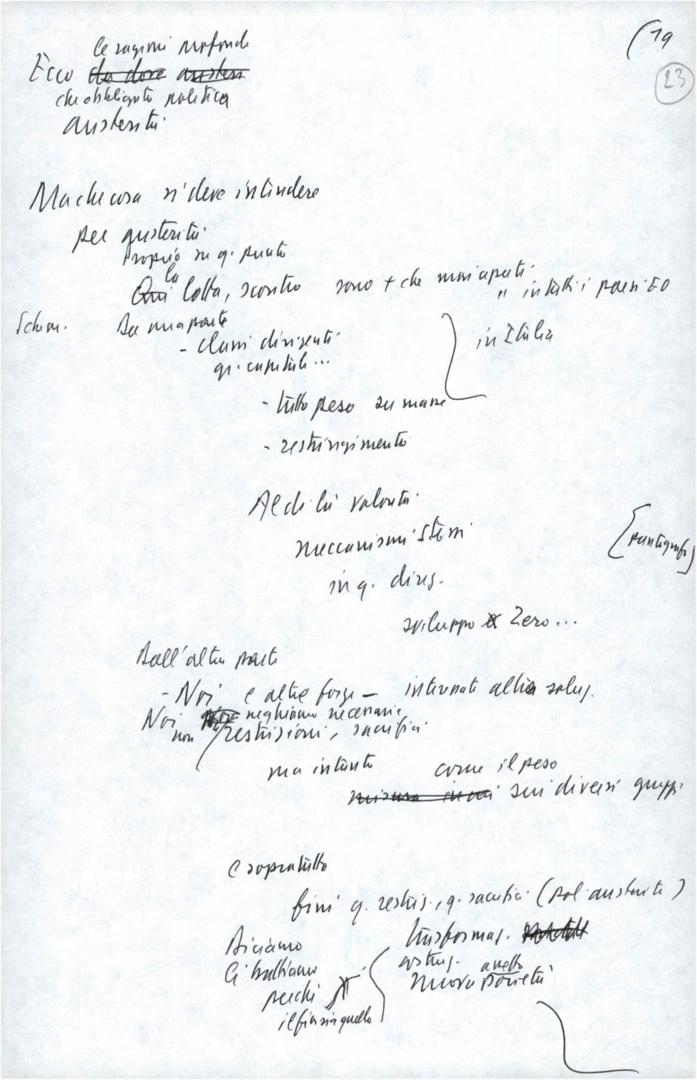 19
23
le ragioni profonde
Ecco da dove
che obbligato politica
austerità
Ma che cosa si deve intendere
per austerità
Proprio su q. punto
Qui la lotta, scontro sono + che mai aperti
" in tutti i paesi EO
Da una parte
- classi dirigenti
gr. capitale...
in Italia
- tutto peso su masse
- restringimento
Al di là volontà
meccanismi stessi
in q. direz.
sviluppo Zero...
Dall'altra parte
- Noi e altre forze - altra soluz.
Noi neghiamo necessarie
non restrizioni, sacrifici
ma intanto come il peso
misura in cui sui diversi gruppi
e soprattutto
fini q. restriz., q. sacrifici (pol. austerità)
Diciamo
Ci battiamo
perché
il fine sia quello
trasformaz.
costruz.
assetto
nuova società